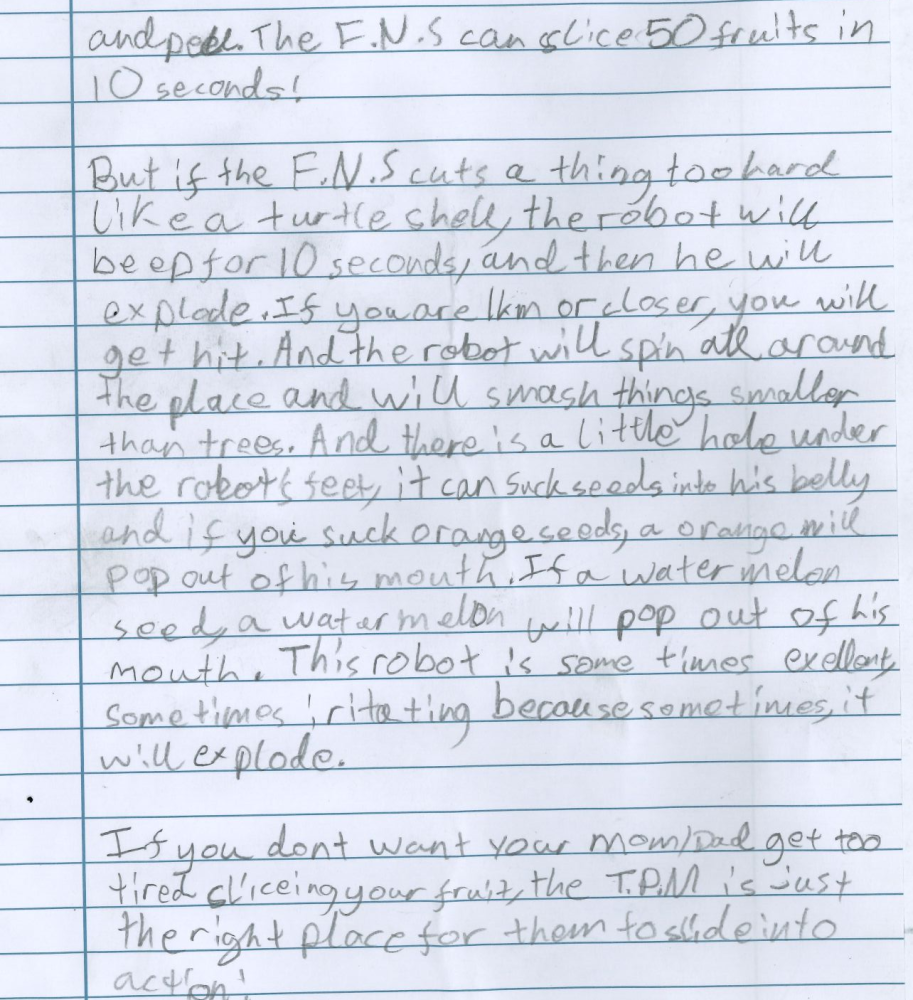 and peel. The F.N.S can slice 50 fruits in
10 seconds!
But if the F.N.S cuts a thing too hard
like a turtle shell, the robot will
beep for 10 seconds, and then he will
explode. If you are 1km or closer, you will
get hit. And the robot will spin all around
the place and will smash things smaller
than trees. And there is a little hole under
the robot's feet, it can suck seeds into his belly
and if you suck orange seeds, a orange will
pop out of his mouth. If a water melon
seed, a water melon will pop out of his
mouth. This robot is some times exellent,
sometimes iritating because sometimes, it
will explode.
If you dont want your mom/Dad get too
tired sliceing your fruit, the T.P.M is just
the right place for them to slide into
action!